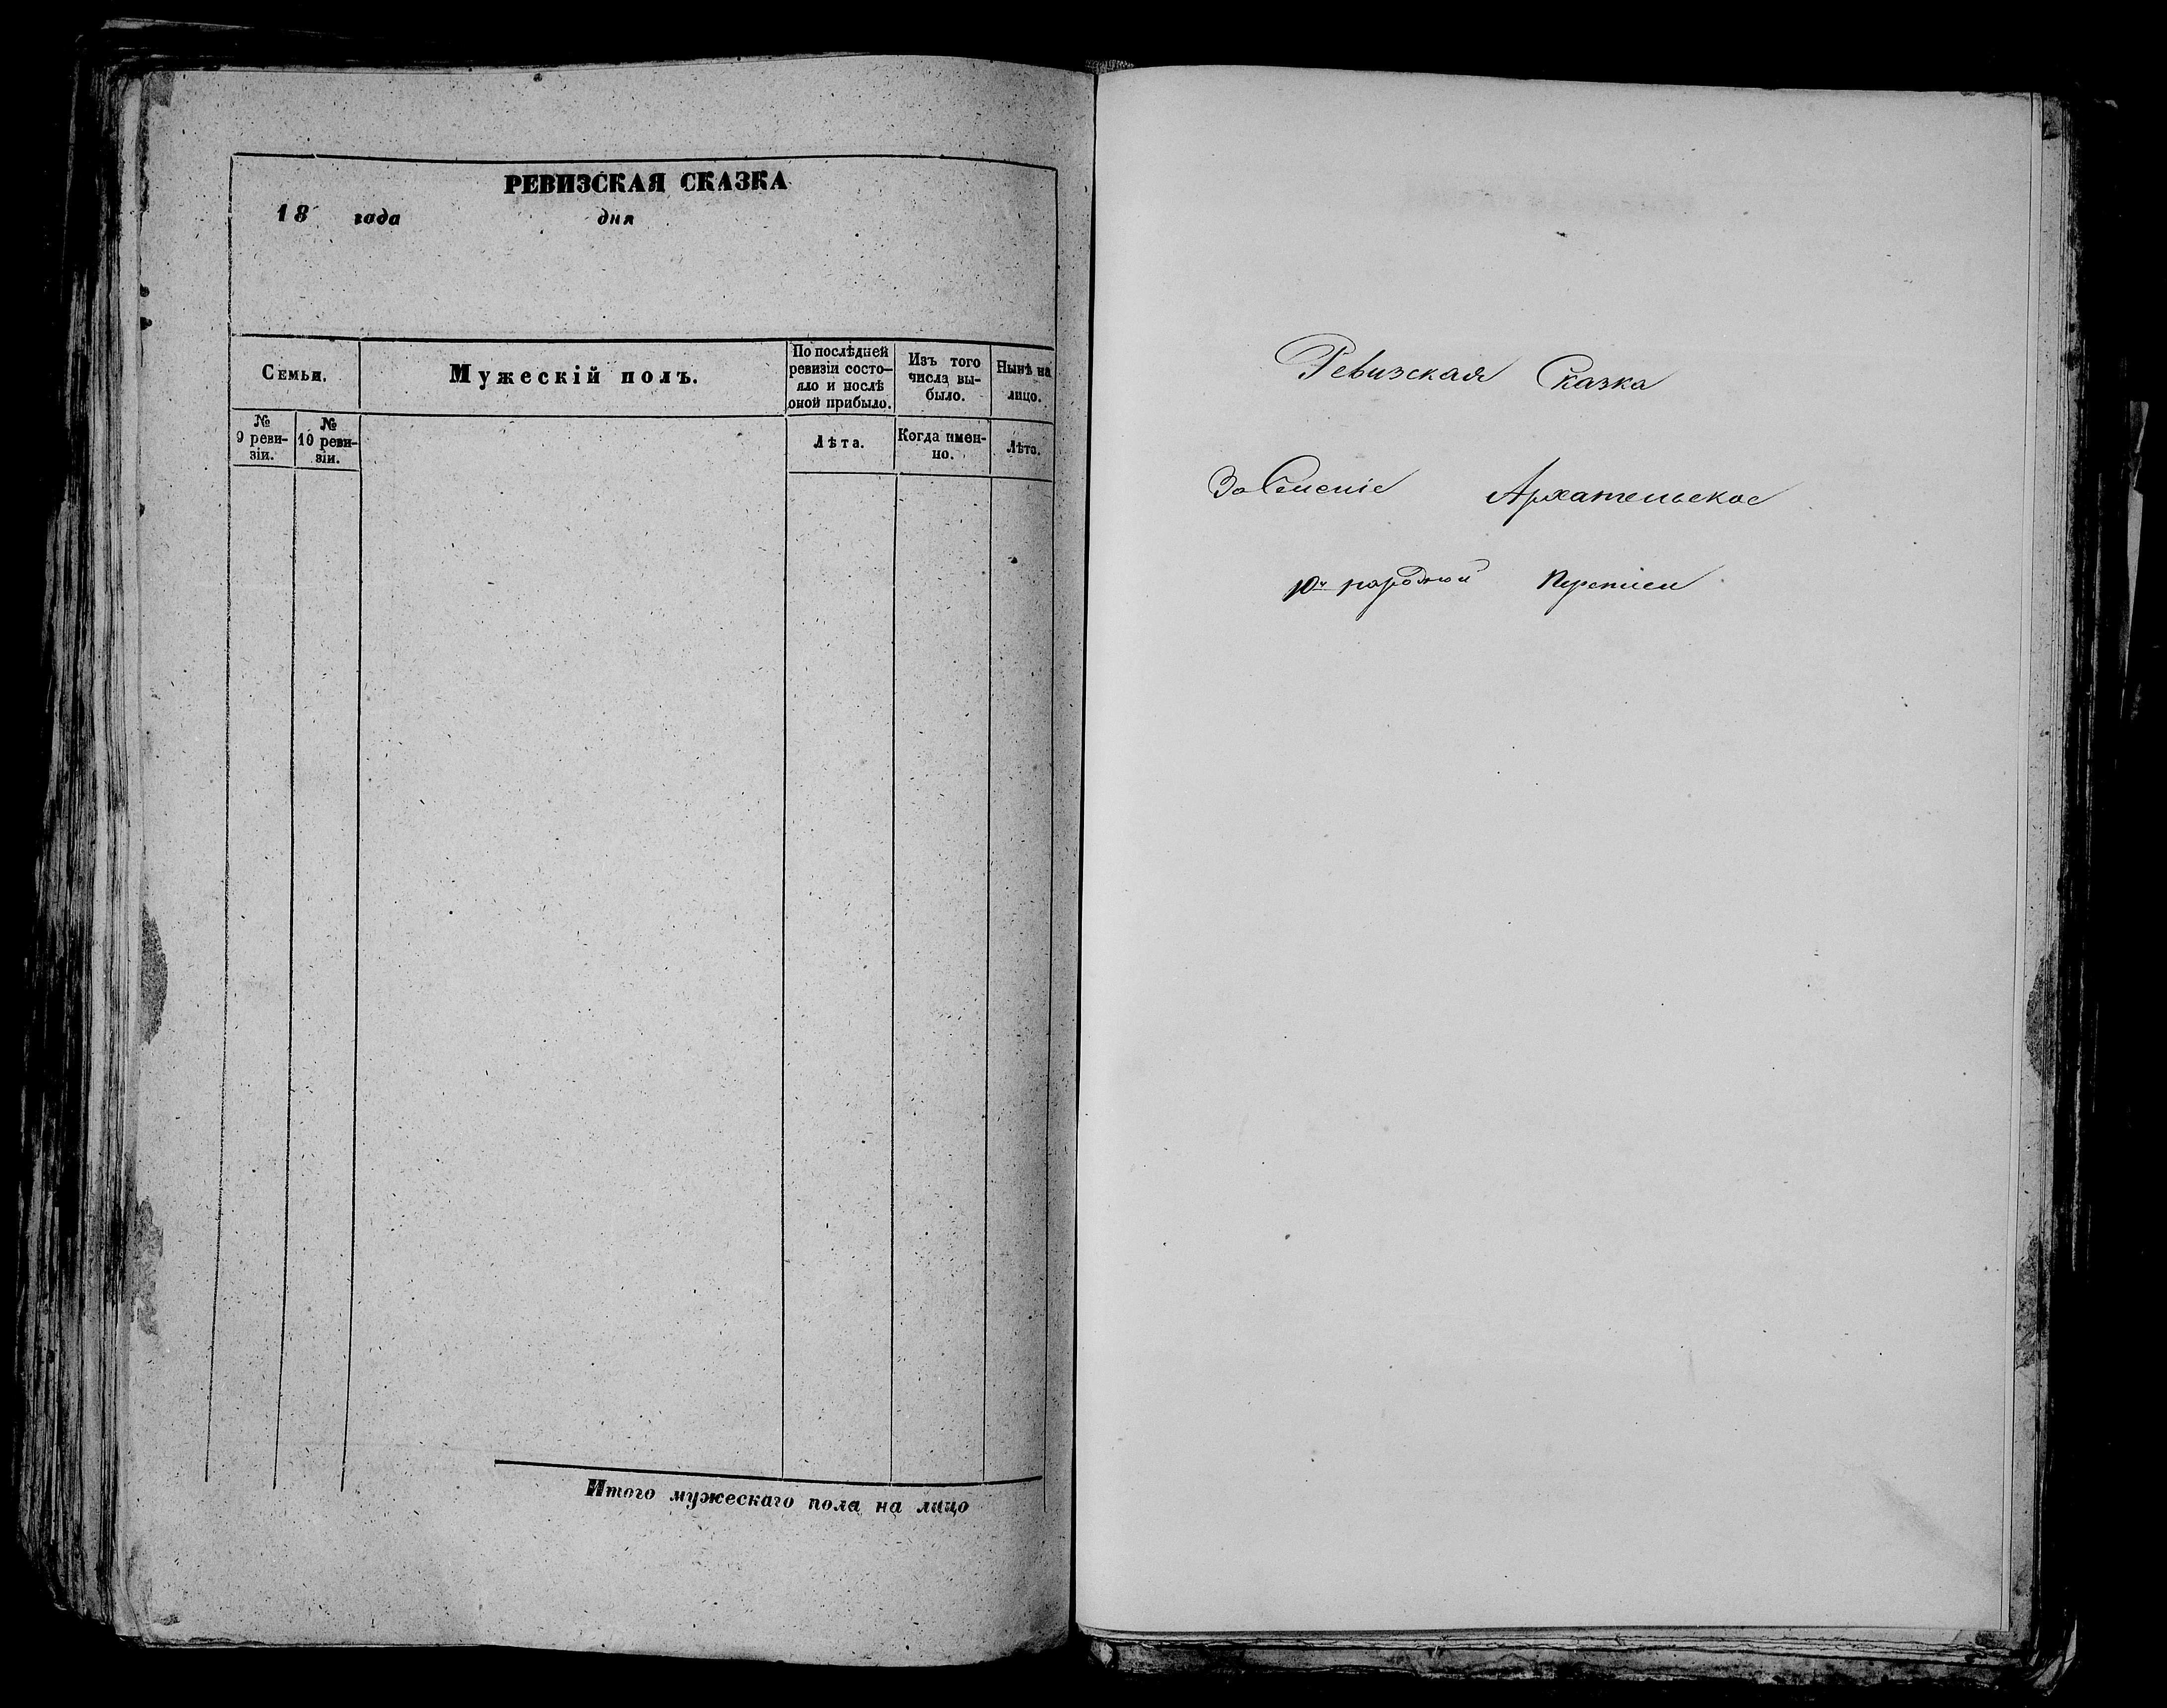 РЕВИЗСКАЯ СКАЗКА
18 года дня
Семьи.
Мужескій полъ.
По послѣдней
ревизіи состо-
яло и послѣ
оной прибыло.
Изъ того
числа вы-
было.
Нынѣ на
лицо.
№
9 реви-
зіи.
№
10 реви-
зіи.
Лѣта.
Когда имен-
но.
Лѣта.
Итого мужескаго пола на лицо
Ревизская Сказка
Архательское
10й народной Переписи